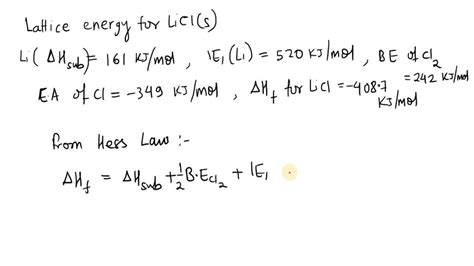 Lattice energy for LiCl(s)
Li (ΔHsub) = 161 KJ/mol , IE1 (Li) = 520 KJ/mol , BE of Cl2 = 242 KJ/mol
E.A of Cl = -349 KJ/mol , ΔHf for LiCl = -408.7 KJ/mol
From Hess Law :-
ΔHf = ΔHsub + 1/2 B.E Cl2 + IE1